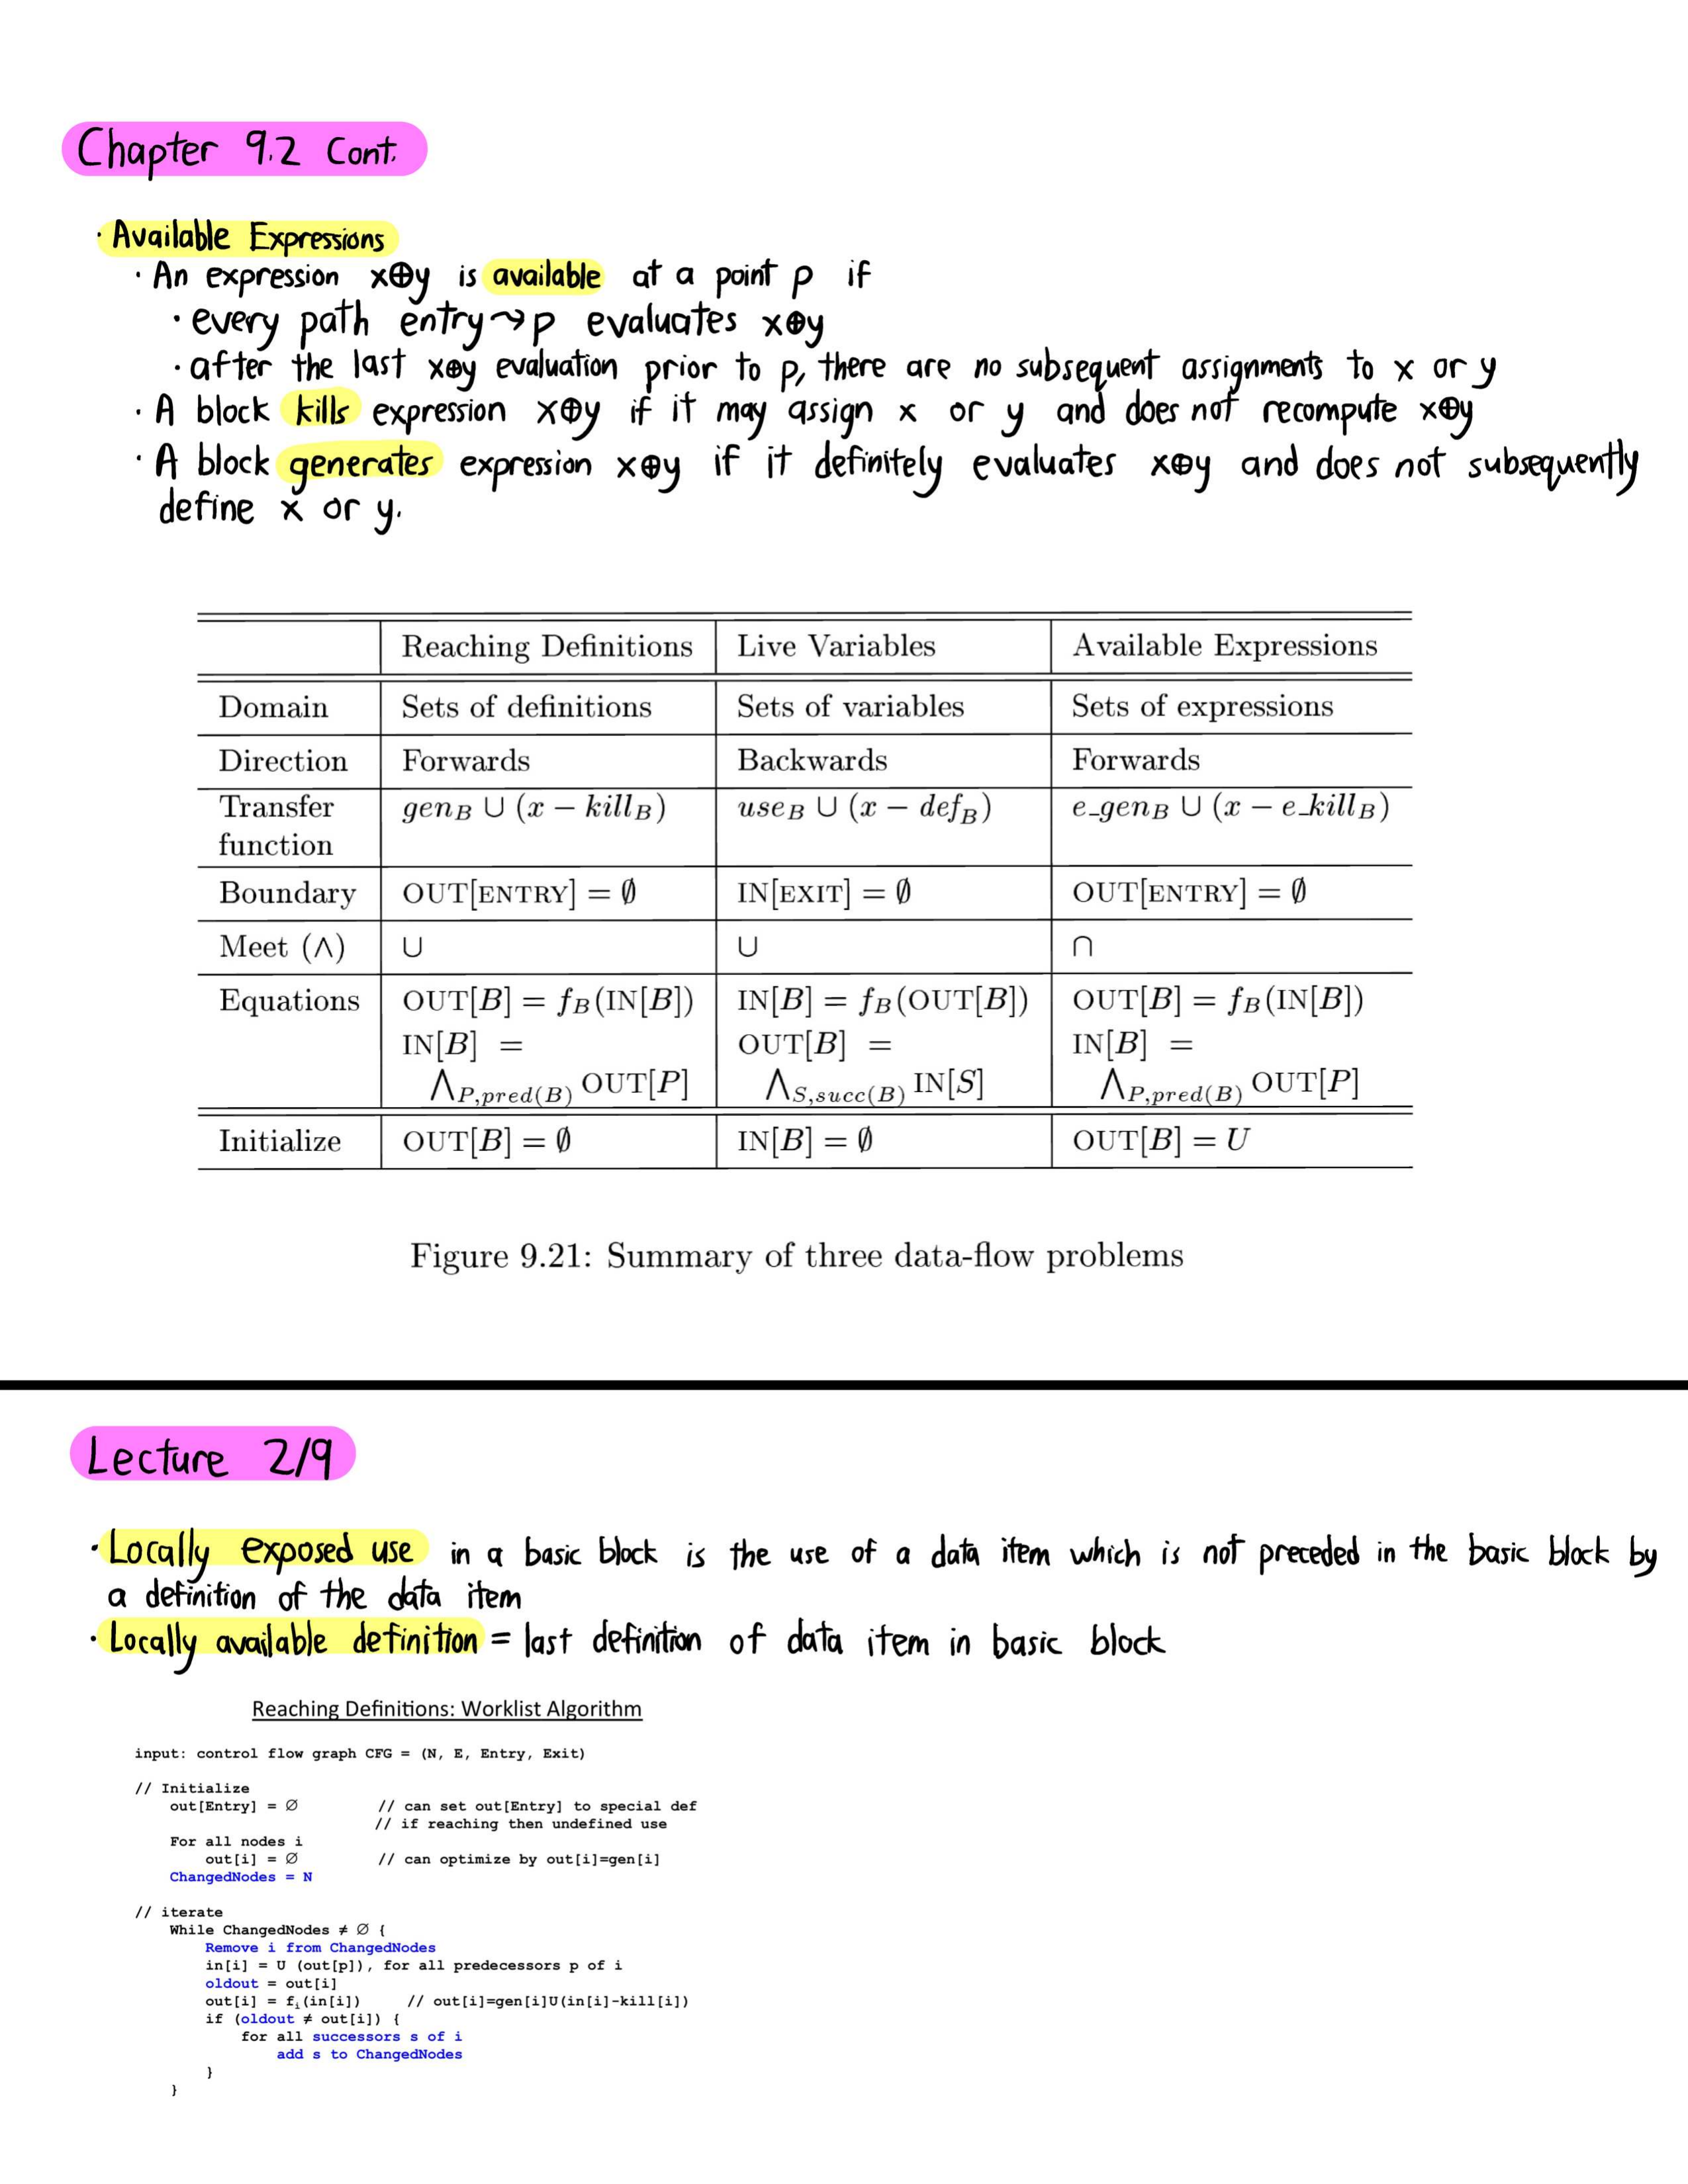 Chapter 9.2 Cont.
· Available Expressions
· An expression x⊕y is available at a point p if
· every path entry⤳p evaluates x⊕y
· after the last x⊕y evaluation prior to p, there are no subsequent assignments to x or y
· A block kills expression x⊕y if it may assign x or y and does not recompute x⊕y
· A block generates expression x⊕y if it definitely evaluates x⊕y and does not subsequently
define x or y.
Reaching Definitions | Live Variables | Available Expressions
Domain | Sets of definitions | Sets of variables | Sets of expressions
Direction | Forwards | Backwards | Forwards
Transfer | gen_B ∪ (x − kill_B) | use_B ∪ (x − def_B) | e_gen_B ∪ (x − e_kill_B)
function
Boundary | OUT[ENTRY] = ∅ | IN[EXIT] = ∅ | OUT[ENTRY] = ∅
Meet (∧) | ∪ | ∪ | ∩
Equations | OUT[B] = f_B(IN[B]) | IN[B] = f_B(OUT[B]) | OUT[B] = f_B(IN[B])
IN[B] = | OUT[B] = | IN[B] =
⋀_P,pred(B) OUT[P] | ⋀_S,succ(B) IN[S] | ⋀_P,pred(B) OUT[P]
Initialize | OUT[B] = ∅ | IN[B] = ∅ | OUT[B] = U
Figure 9.21: Summary of three data-flow problems
Lecture 2/9
· Locally exposed use in a basic block is the use of a data item which is not preceded in the basic block by
a definition of the data item
· Locally available definition = last definition of data item in basic block
Reaching Definitions: Worklist Algorithm
input: control flow graph CFG = (N, E, Entry, Exit)
// Initialize
out[Entry] = ∅ // can set out[Entry] to special def
// if reaching then undefined use
For all nodes i
out[i] = ∅ // can optimize by out[i]=gen[i]
ChangedNodes = N
// iterate
While ChangedNodes ≠ ∅ {
Remove i from ChangedNodes
in[i] = U (out[p]), for all predecessors p of i
oldout = out[i]
out[i] = f_i(in[i]) // out[i]=gen[i]U(in[i]-kill[i])
if (oldout ≠ out[i]) {
for all successors s of i
add s to ChangedNodes
}
}